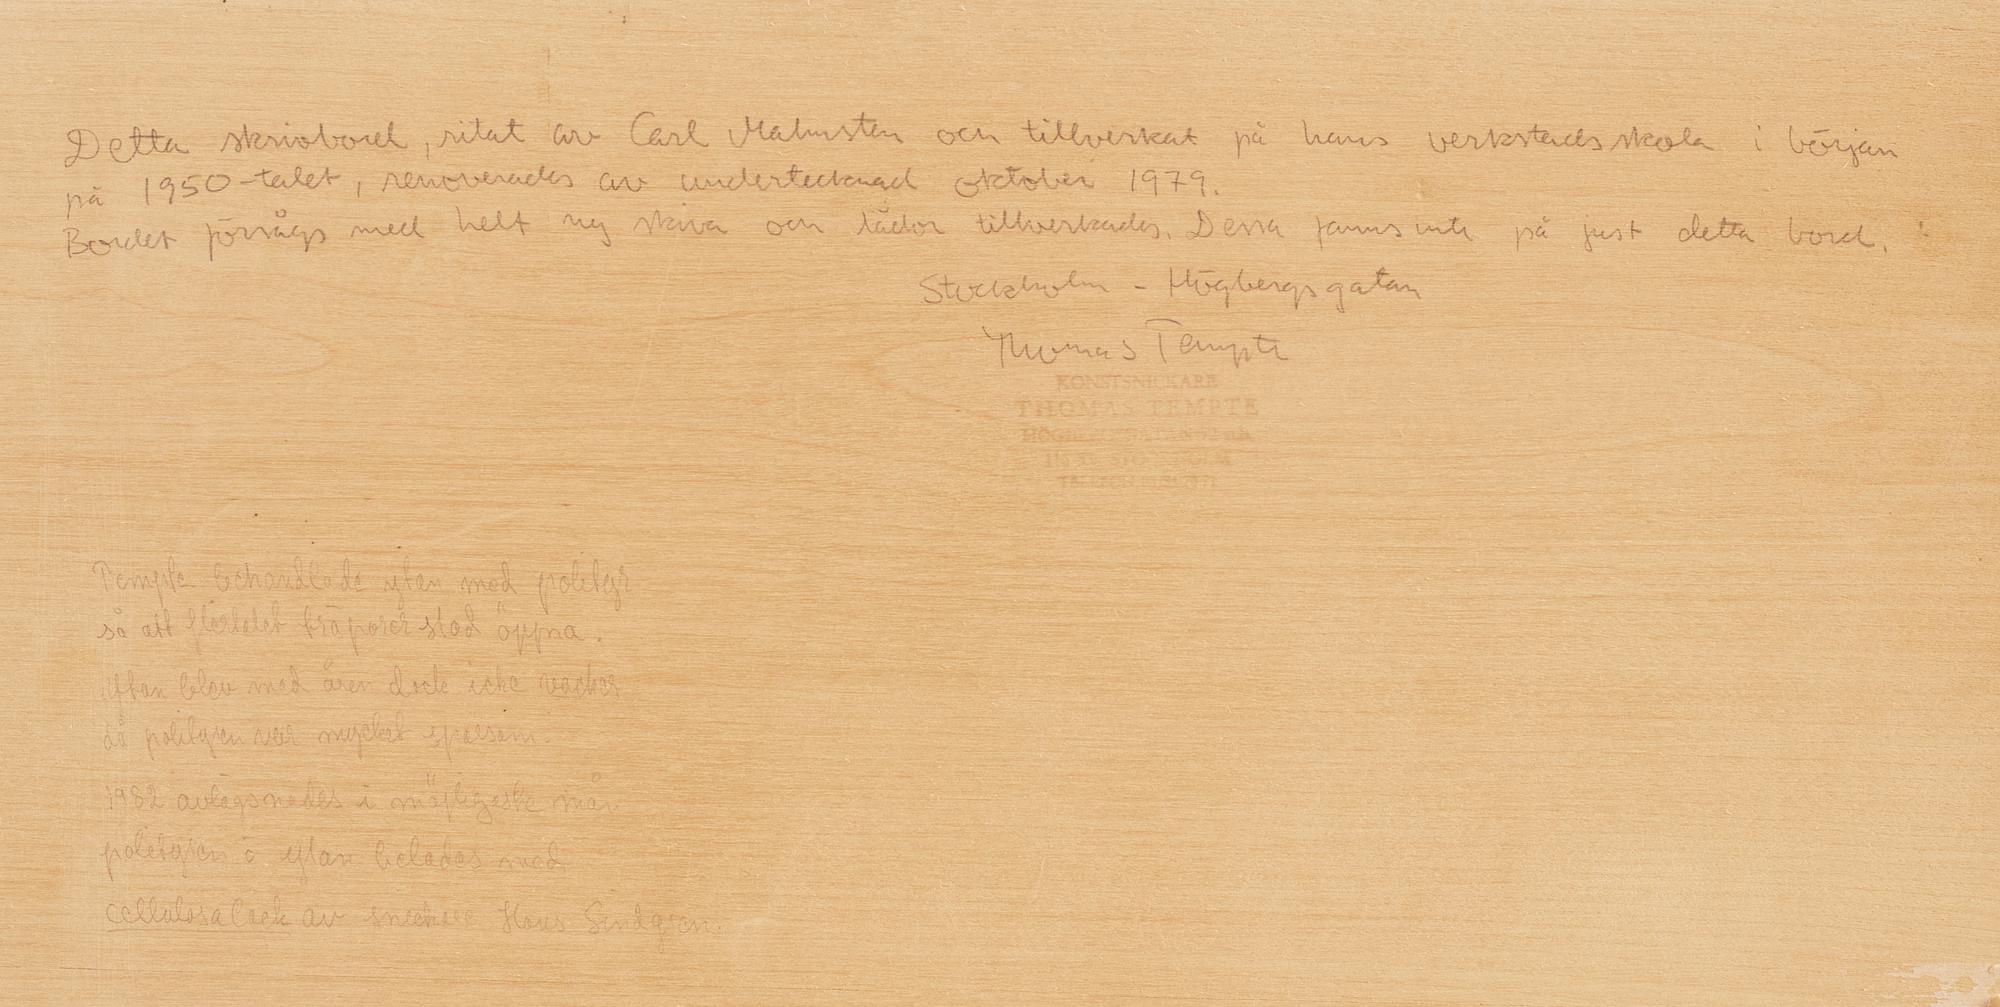 Detta skrivbord, ritat av Carl Malmsten och tillverkat på hans verkstadsskola i början
på 1950-talet, renoverades av undertecknad oktober 1979.
Bordet försågs med helt ny skiva och lådor tillverkades. Dessa fanns inte på just detta bord.
Stockholm - Högbergsgatan
Thomas Tempte
KONSTSNICKARE
THOMAS TEMPTE
STOCKHOLM
TELEFON
Tempte behandlade ytan med polityr
så att flertalet träporer stod öppna.
Ytan blev med åren dock icke vacker
då polityren var mycket sparsam.
1982 avlägsnades i möjligaste mån
polityren o ytan belades med
cellulosalack av snickare Hans